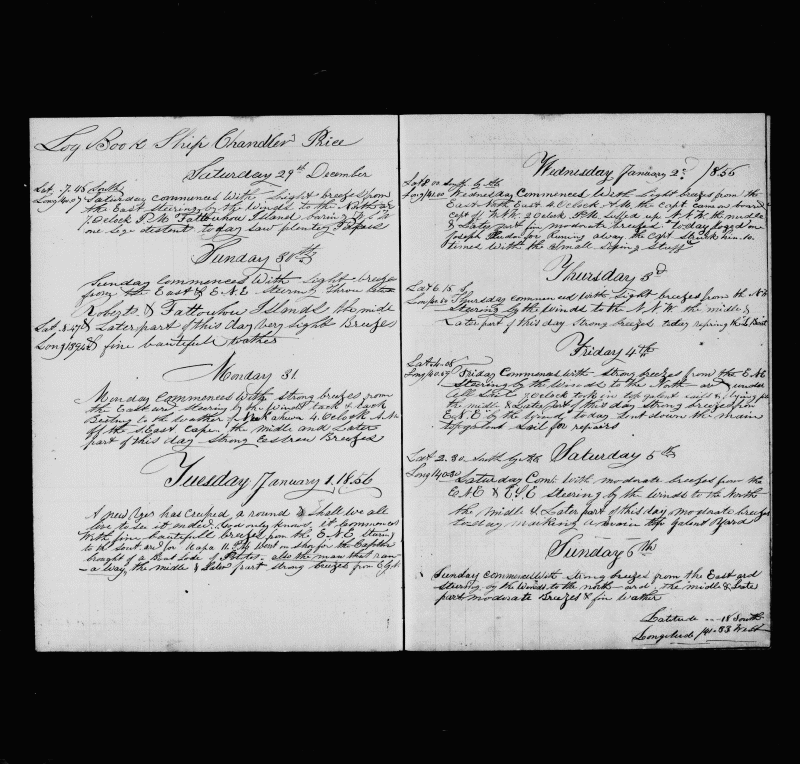 Log Book Ship Chandler Price
Saturday 29th December
Lat. 7.45 South
Long 140.07 Saturday commences With Light breezes from
the East steering by the Winds to the North ar
7 Oclock P.M. Fattouhou Island baring
one lige distent to day saw plenty
Sunday 30th
Sunday commences With Light breezes
from the East & E.N.E Steering Throu
Roberts & Fattouhou Islands the midle
Lat. 8.47 & Later part of this day very Light Breezes
Long 139.42 & fine bautefull wather
Monday 31.
Monday commences with strong breezes from
the East are steering by the Wind tack & tack
Beating to the weather 4 Oclock A.M.
off the S.East Cape. the midle and Later
part of this day Strong Eastren Breezes
Tuesday January 1. 1856
A new Year has creeped a round Shall we all
live to see it ended. God only knows, it Commences
With fine bautefull breezes from the E.N.E Stearing
to the Sout. ard for Uapa 11 A.M. went on shor for the Captain
braught of a Boat Lode of Potatos. also the man that ran
- a way. the midle & Later part strong breezes from E by N.
Wednesday January 2d 1856
Lat 8.00 South by Ob
Long 141.00 Wednesday Commences With Light breezes from the
East North East 4 Oclock A.M. the capt came on board
kept of N.N.W. 2 Oclock P.M. Luffed up N.N.W. the midle
& Later part fin moderate breezes today loged one
Joseph for Runing away the Capt Struck him 10
times with the small Stuff
Thursday 3d
Lat 6.15 S.
Long Thursday commenced with Light breezes from the N.E
Steering by the winds to the N.N.W. the midle &
Later part of this day strong breezes today repring the L Boat
Friday 4th
Lat 4.08
Long 140.57 Friday Commences with strong breezes from the E.N.E
Steering by the Winds to the North - ard under
All Sail 7 Oclock took in topgalent sails & flying
the midle & Later Part of this day strong breezes from
E.N.E by the Wind, to day sent down the main
topgalent sail for repairs
Lat 2.30 South by Ob Saturday 5th
Long 140.30 Saturday Com. with moderate breezes from the
E.N.E & E.S.E Steering by the Winds to the North
the midle & Later part of this day moderate breezes
today making a main top galent Yard
Sunday 6th
Sunday commences with strong breezes from the East and
stearing by the Winds to the north - ard the midle & Late
part moderate Breezes & fin wather
Latitude --- 18 South
Longitude 141.33 West